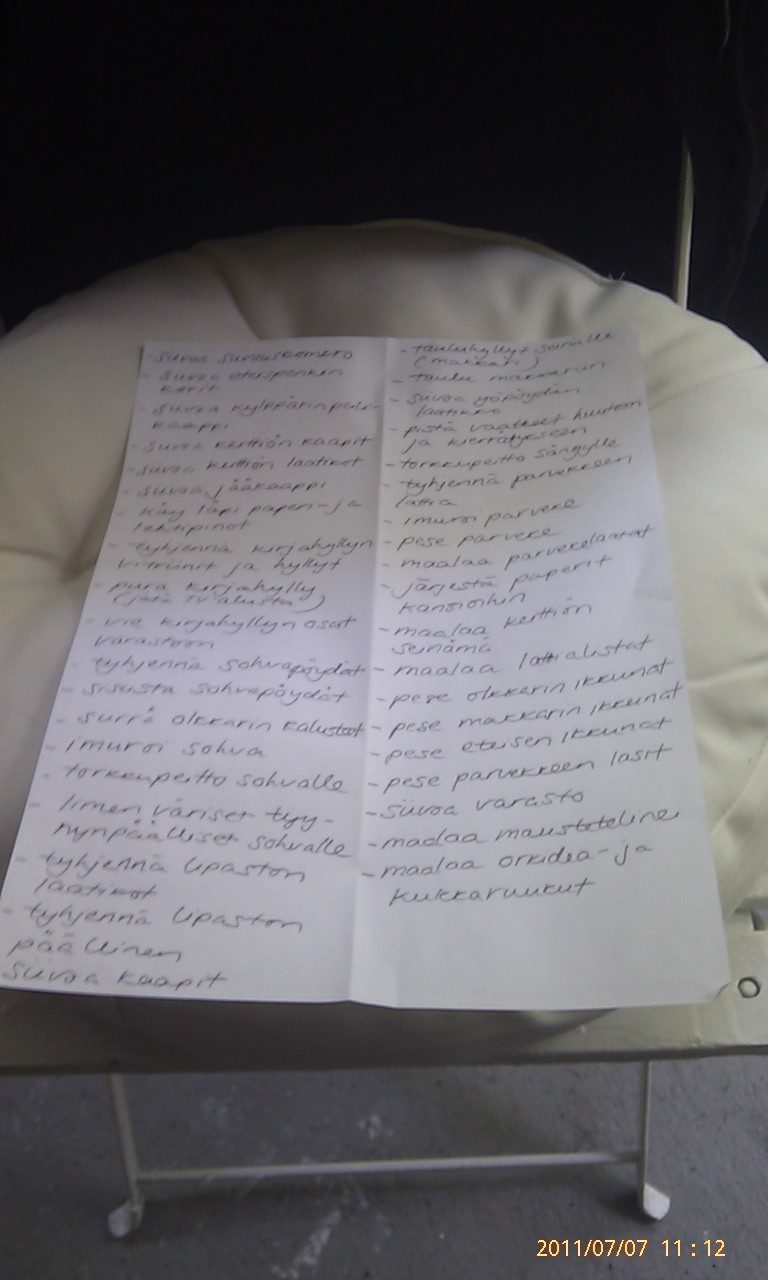 - siivoa siivouskomero
- siivoa eteispenkin
korit
- siivoa kylppärin peili-
kaappi
- siivoa keittiön kaapit
- siivoa keittiön laatikot
- siivoa jääkaappi
- käy läpi paperi- ja
lehtipinot
- tyhjennä kirjahyllyn
vitriinit ja hyllyt
- pura kirjahylly
(jätä tv alusta)
- vie kirjahyllyn osat
varastoon
- tyhjennä sohvapöydät
- sisusta sohvapöydät
- siirrä olkkarin kalusteet
- imuroi sohva
- torkkupeitto sohvalle
- limen väriset tyy-
nynpäälliset sohvalle
- tyhjennä lipaston
laatikot
- tyhjennä lipaston
päällinen
siivoa kaapit
- tauluhyllyt seinälle
(makkari)
- taulu makkariin
- siivoa yöpöydän
laatikko
- pistä vaatteet huutoon
ja kierrätykseen
- torkkupeitto sängylle
- tyhjennä parvekkeen
lattia
- imuroi parveke
- pese parveke
- maalaa parvekelaatat
- järjestä paperit
kansioihin
- maalaa keittiön
seinämä
- maalaa lattialistat
- pese olkkarin ikkunat
- pese makkarin ikkunat
- pese eteisen ikkunat
- pese parvekkeen lasit
- siivoa varasto
- maalaa mausteteline
- maalaa orkidea- ja
kukkaruukut
2011/07/07 11:12